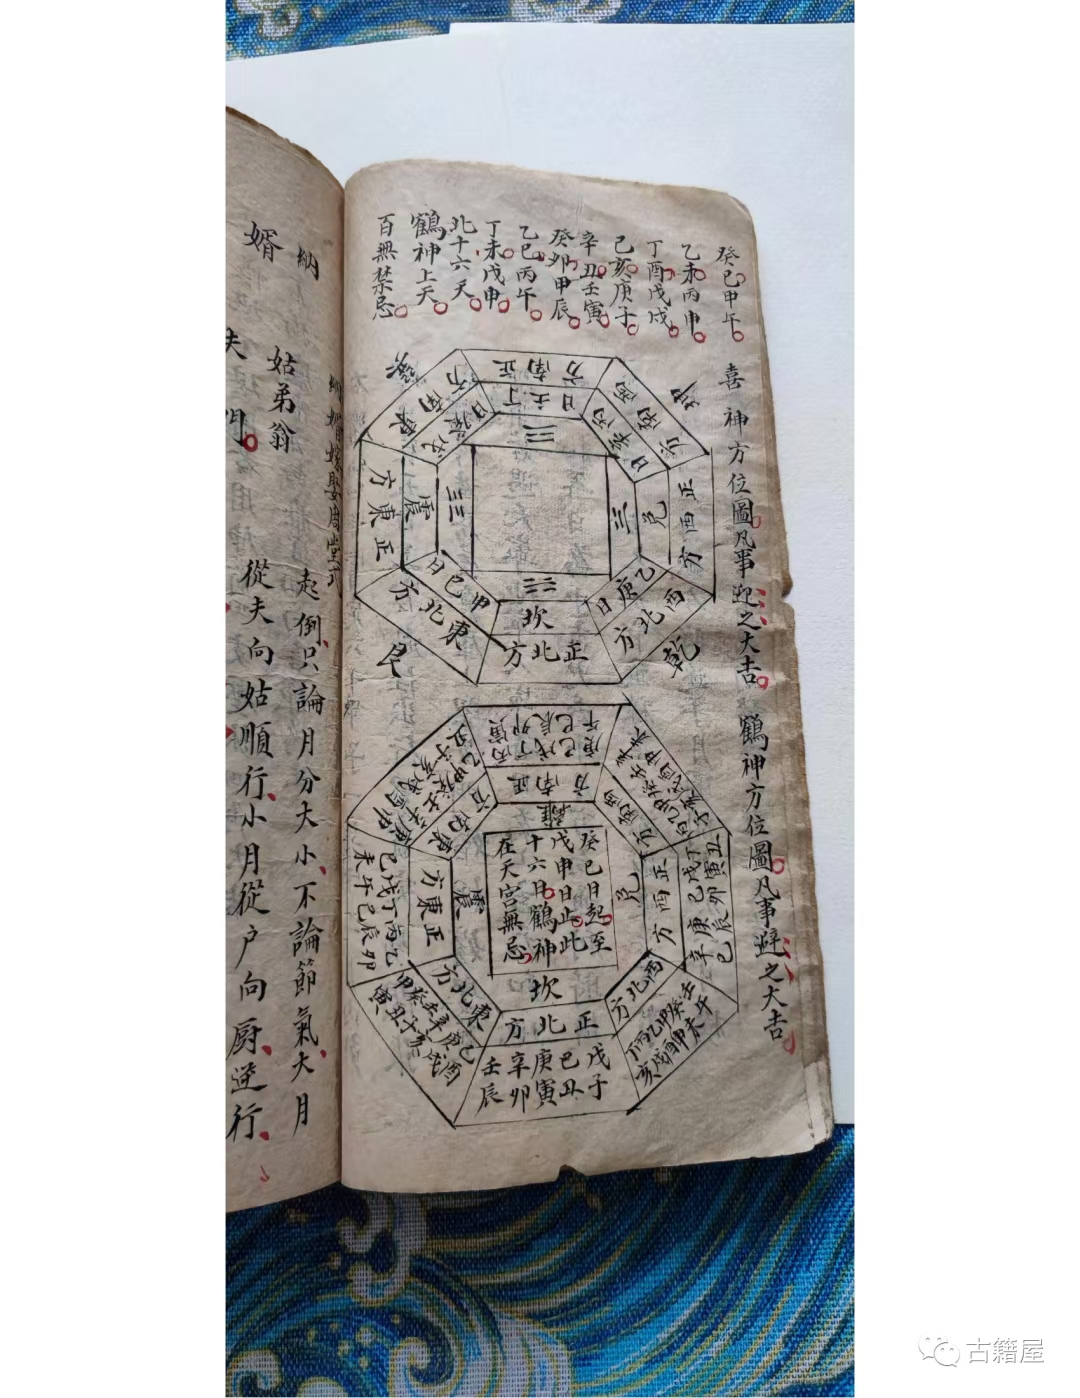 癸巳甲午
乙未丙申
丁酉戊戌
己亥庚子
辛丑壬寅
癸卯甲辰
乙巳丙午
丁未戊申
北十六天
鶴神上天
百無禁忌
喜神方位圖凡事迎之大吉
鶴神方位圖凡事避之大吉
正南方
丁壬日
西南方
丙辛日
坤
正西方
兌
西北方
乙庚日
乾
正北方
坎
東北方
甲己日
艮
正東方
震
東南方
戊癸日
巽
癸巳日起至
戊申日止此
十六日鶴神
在天宮無忌
離
正南方
丙丁戊己庚
寅卯辰巳午
西南方
正西方
兌
丁戊己庚辛
丑寅卯辰巳
西北方
壬癸甲乙丙丁
午未申酉戌亥
正北方
坎
戊子
己丑
庚寅
辛卯
壬辰
東北方
己庚辛壬癸甲
酉戌亥子丑寅
正東方
震
乙丙丁戊己
卯辰巳午未
東南方
納婿嫁娶周堂式
起倒只論月分大小不論節氣大月
從夫向姑順行小月從户向厨逆行
納
婿
姑弟翁
夫
門
古籍屋